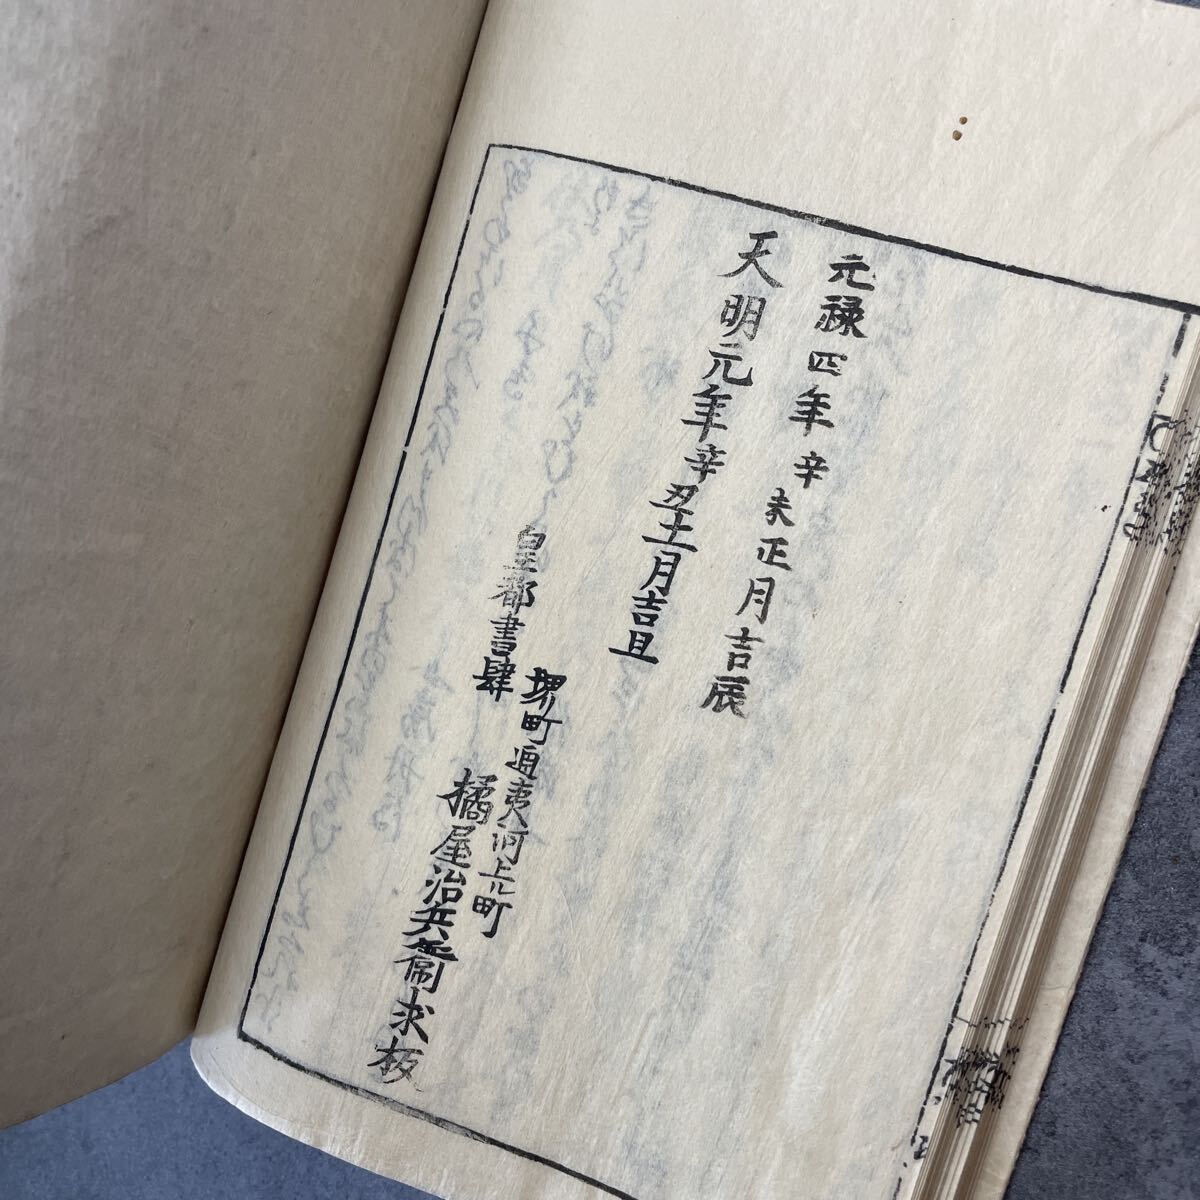 元禄四年辛未正月吉辰
天明元年辛丑十一月吉旦
皇都書肆
堺町通夷河上ル町
橘屋治兵衞求板